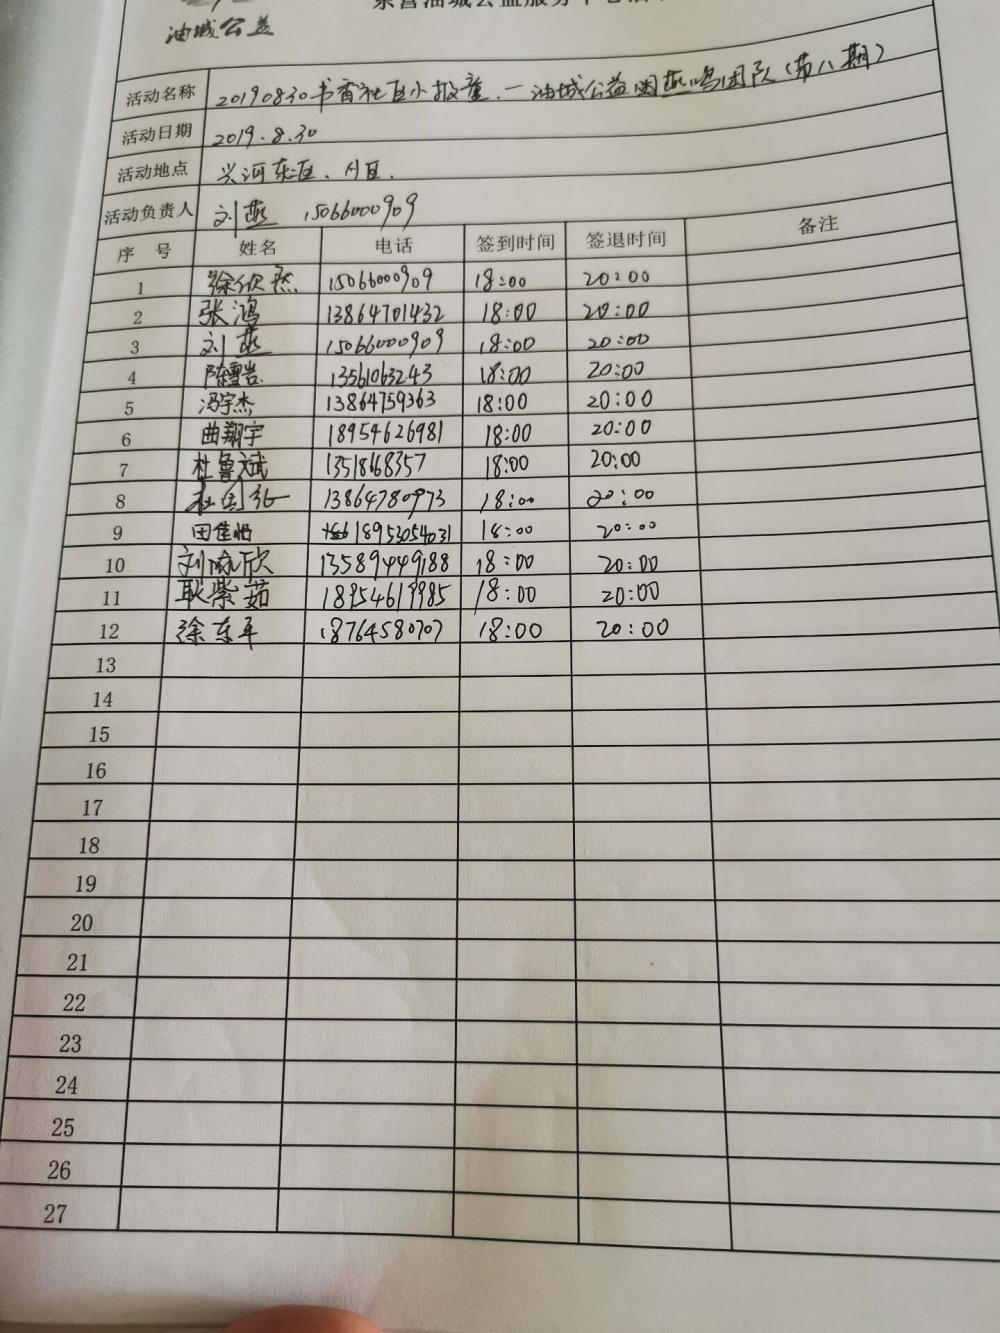 油城公益
活动名称 20190830书香社区小报童.一油城公益燕鸣团队(第八期)
活动日期 2019.8.30
活动地点 兴河东区、A区.
活动负责人 刘燕 15066000909
序号 姓名 电话 签到时间 签退时间 备注
1 徐欣然 15066000909 18:00 20:00
2 张鸿 13864701432 18:00 20:00
3 刘燕 15066000909 18:00 20:00
4 陈雪岩 13561063243 18:00 20:00
5 冯宇杰 13864759363 18:00 20:00
6 曲翔宇 18954626981 18:00 20:00
7 杜鲁斌 1351868357 18:00 20:00
8 杜 13864780973 18:00 20:00
9 田佳怡 18953054031 18:00 20:00
10 刘欣 13589449188 18:00 20:00
11 耿紫茹 18954619985 18:00 20:00
12 徐东平 18764580707 18:00 20:00
13
14
15
16
17
18
19
20
21
22
23
24
25
26
27